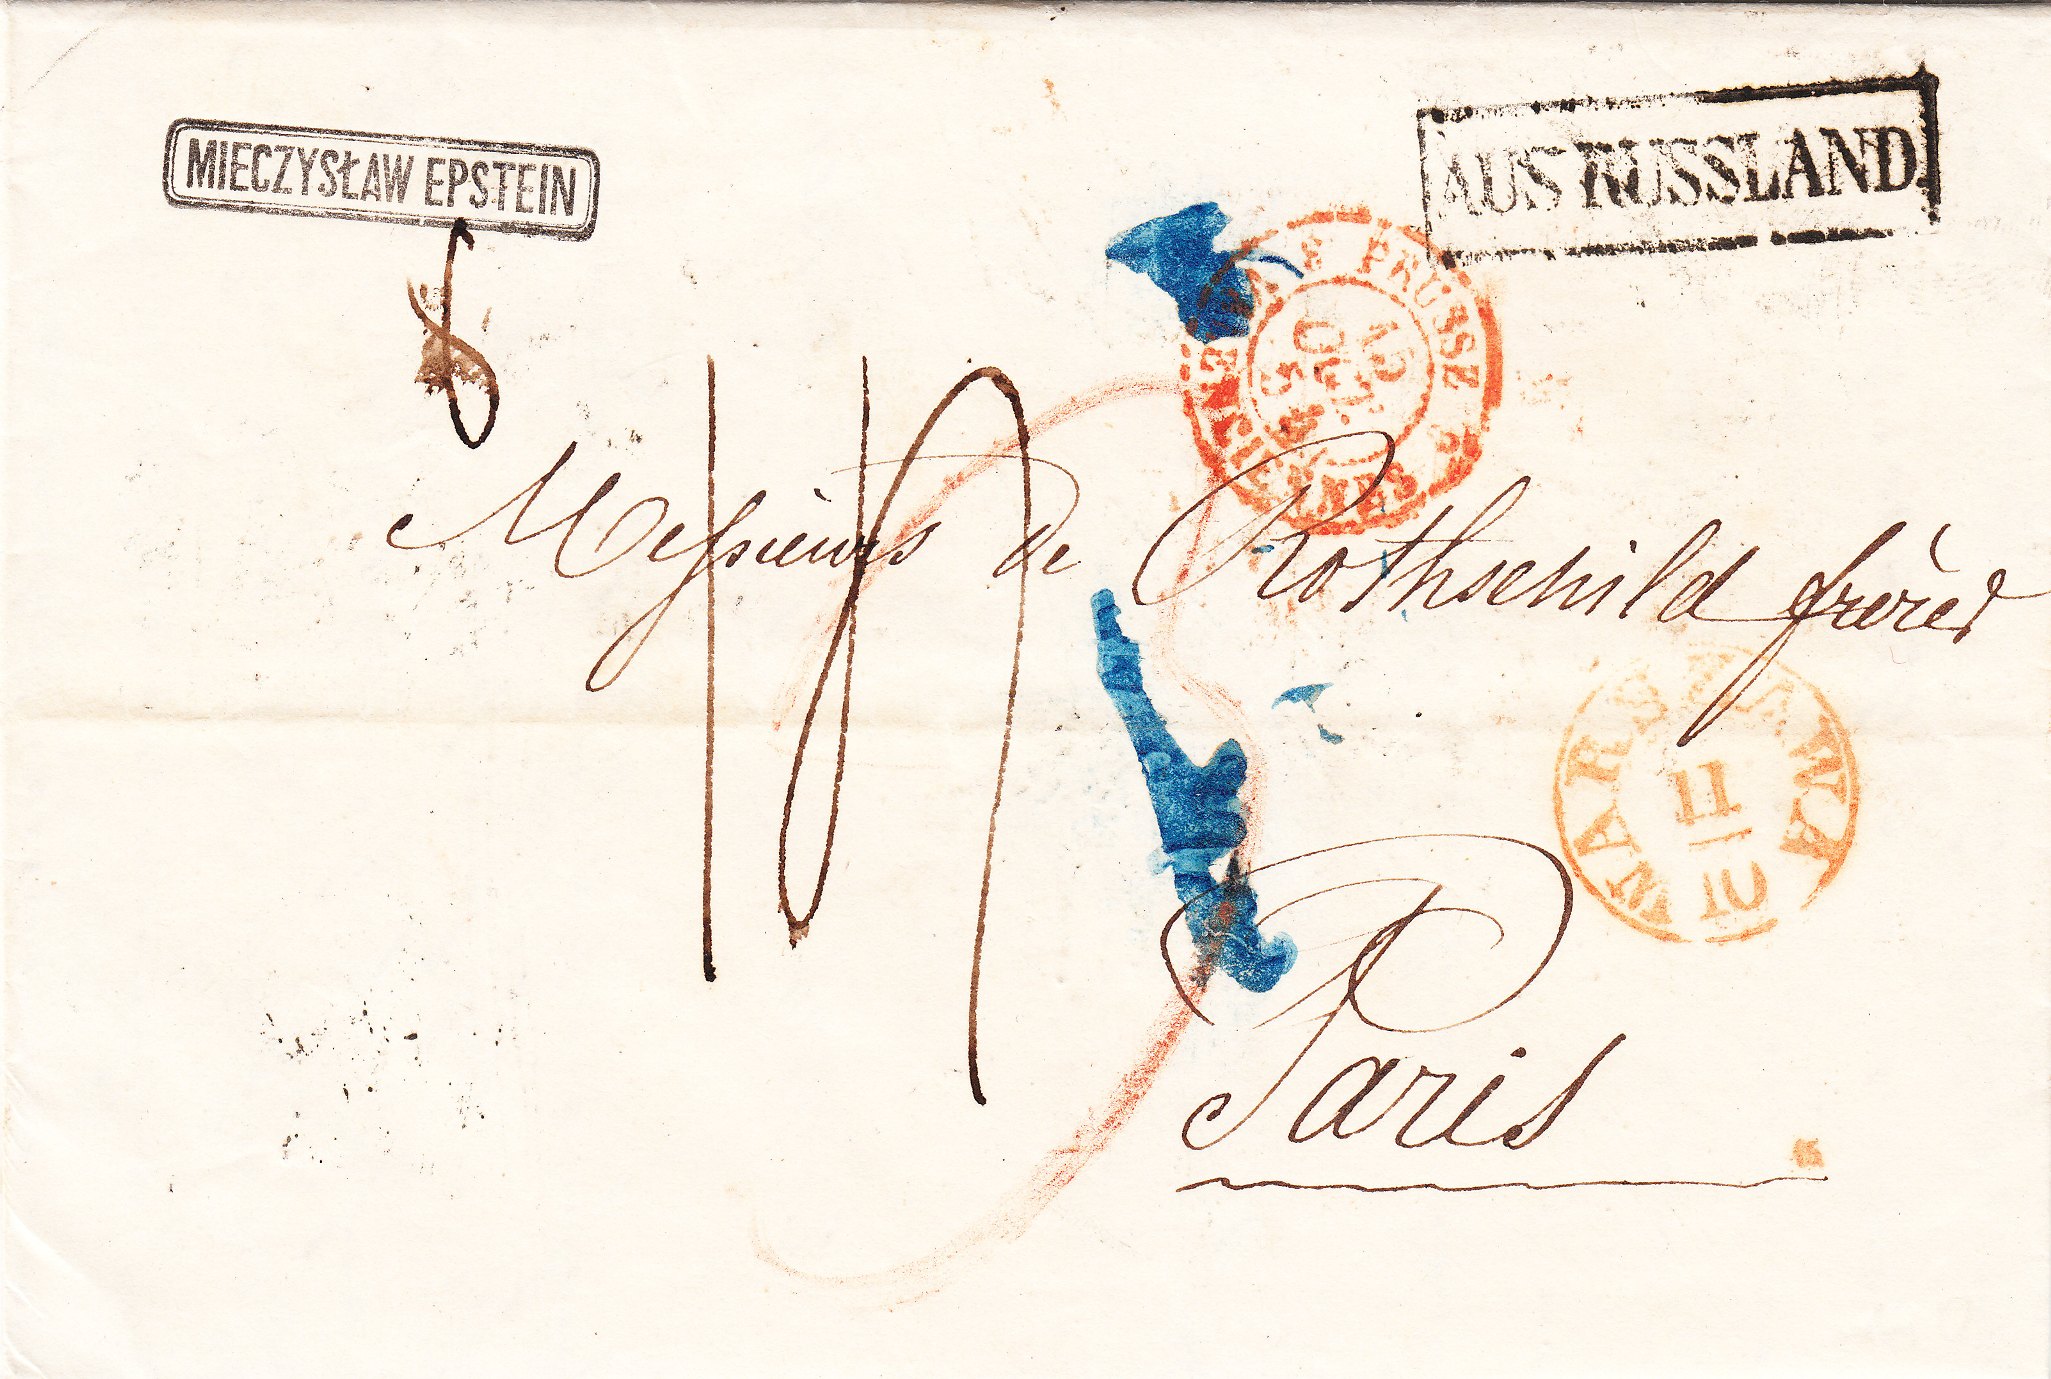 MIECZYSŁAW EPSTEIN
AUS RUSSLAND
PRUSSE
VALENCIENNES
15
OCT.
Messieurs de Rothschild frères
WARSZAWA
11
10
Paris